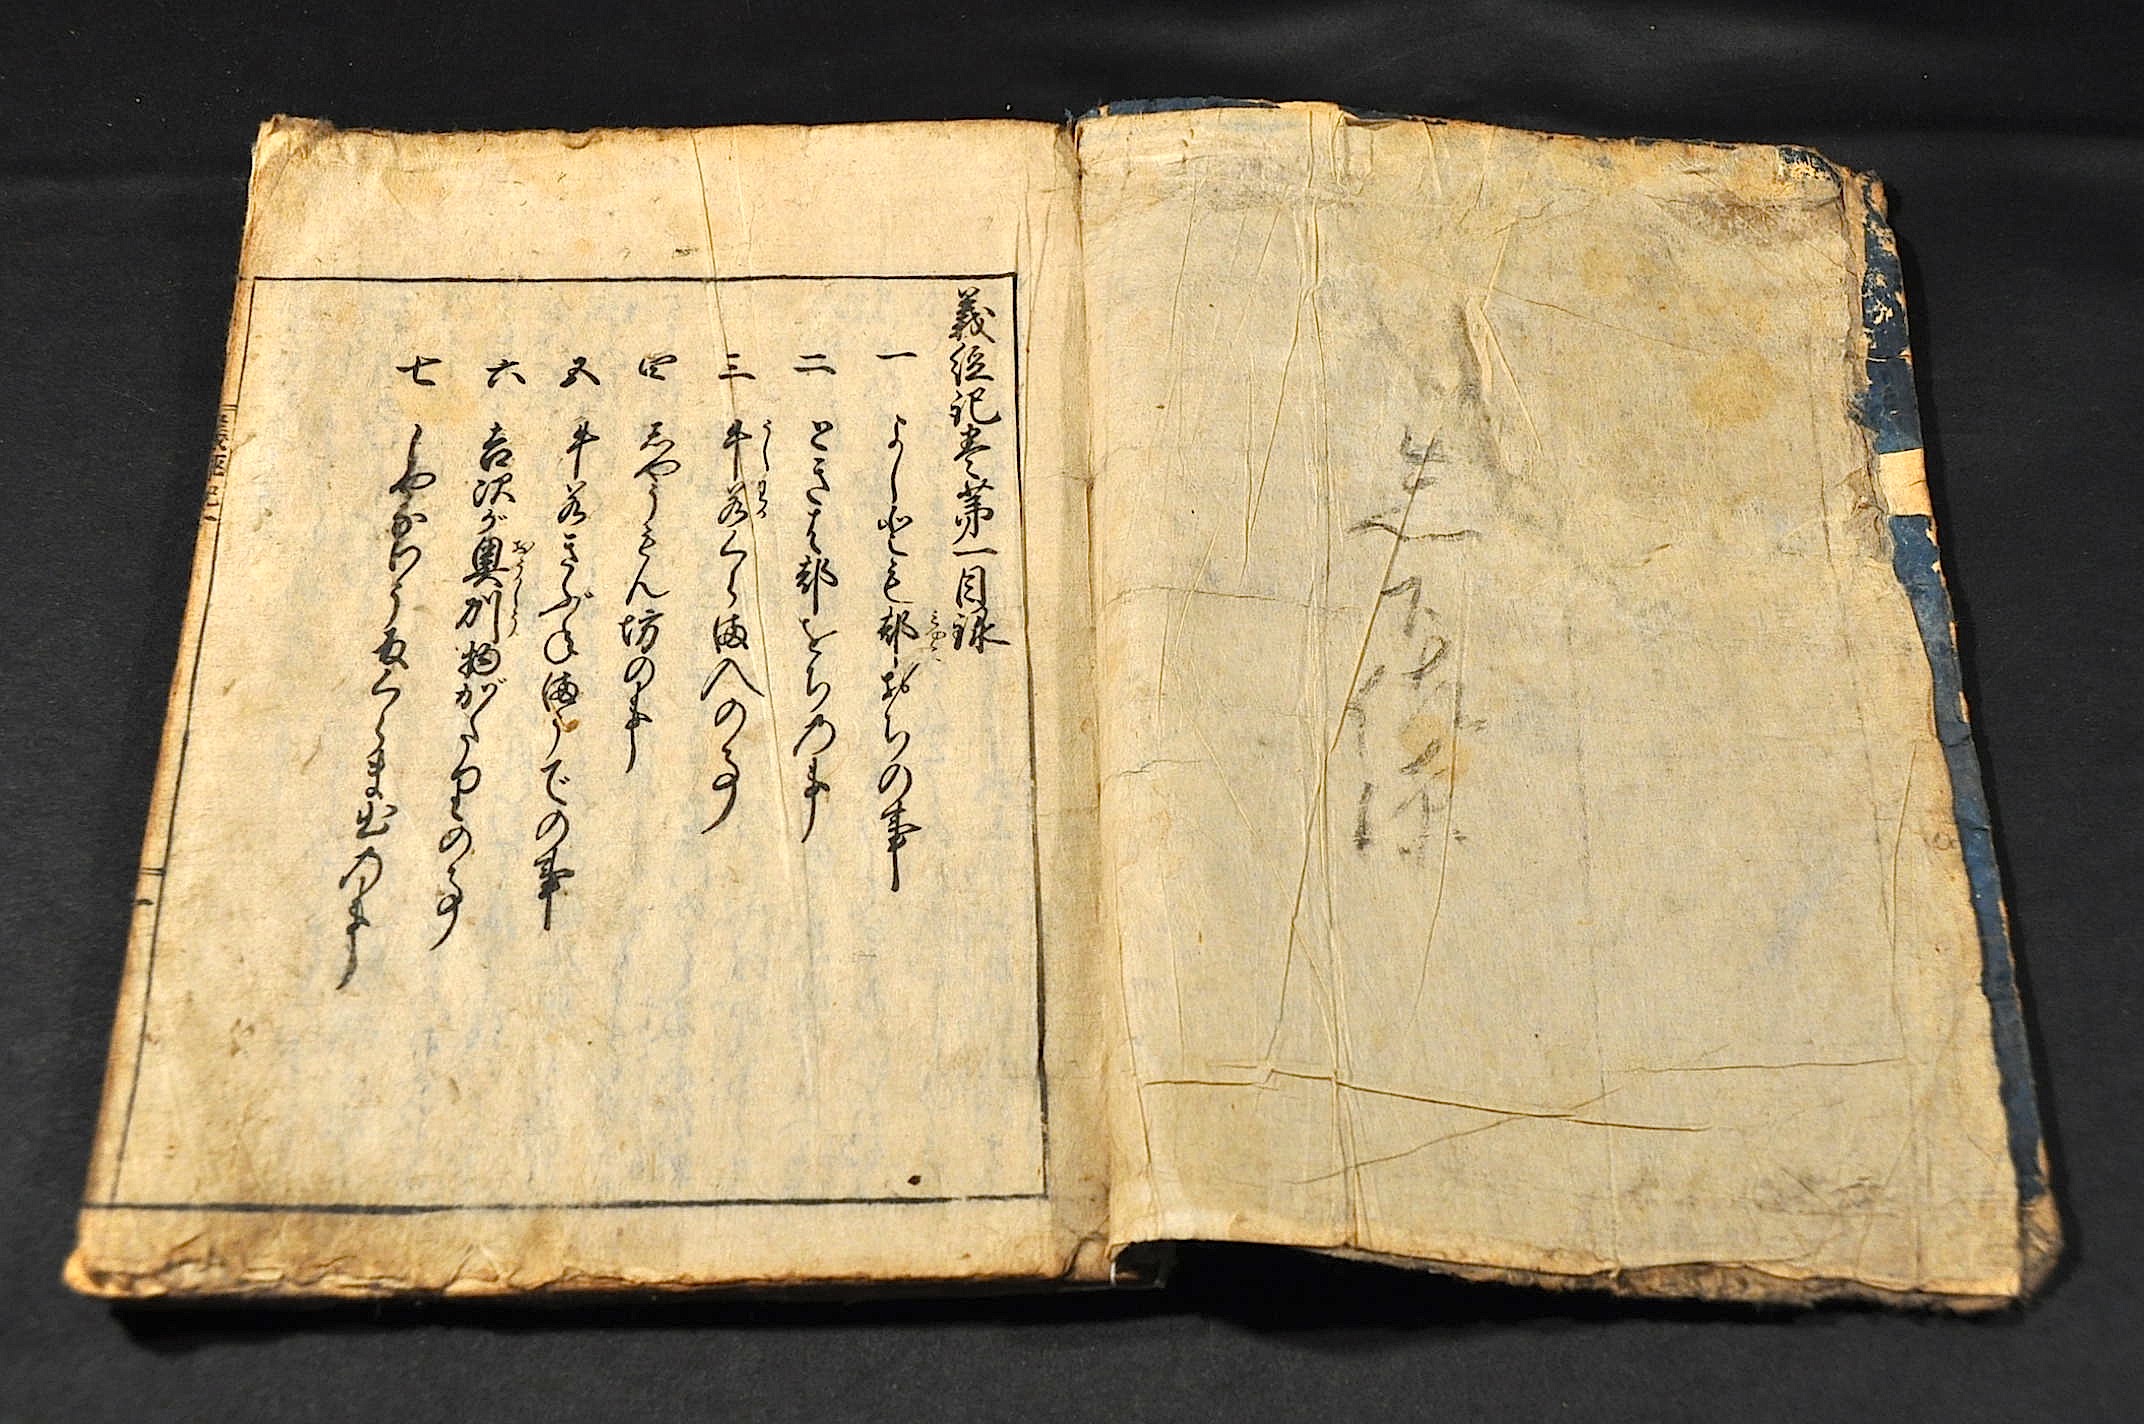 義経記巻第一目録
一 よしとも都おちの事
みやこ
二 ときは都をち乃事
三 牛若くらま入の事
うしわか
四 志やうもん坊の事
五 牛若きぶねまうでの事
六 吉次が奥州物がたりの事
おうしう
七 しやなわう殿くらま出乃事